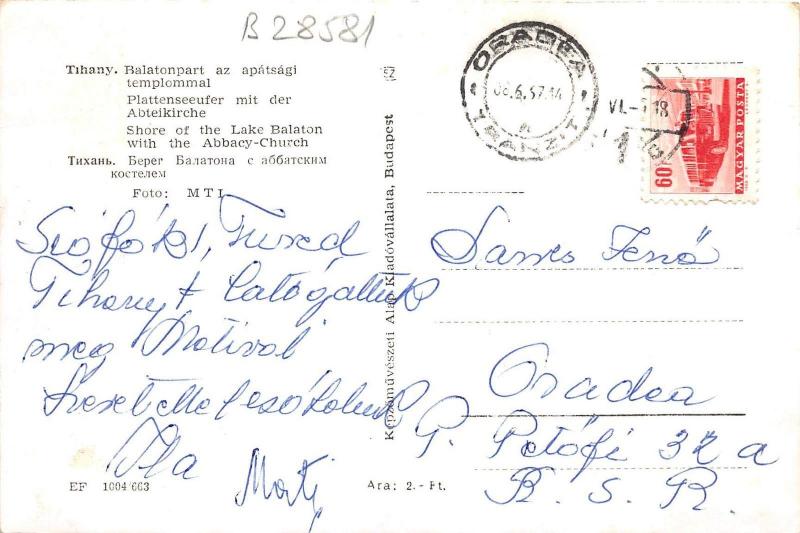 B 28581
Tihany. Balatonpart az apátsági
templommal
Plattenseeufer mit der
Abteikirche
Shore of the Lake Balaton
with the Abbacy-Church
Тихань. Берег Балатона с аббатским
костелем
Foto: MTI
Siófoki, Füred
Tihanyt látogattuk
meg Matival
Szeretettel csókolunk
Ila
Mati
EF 1004/663
Ara: 2.- Ft.
Képzőművészeti Alap Kiadóvállalata, Budapest
ORADEA
TRANZIT
VI.
18
60f
MAGYAR POSTA
Jenő
Oradea
P. Petőfi 32 a
R. S. R.